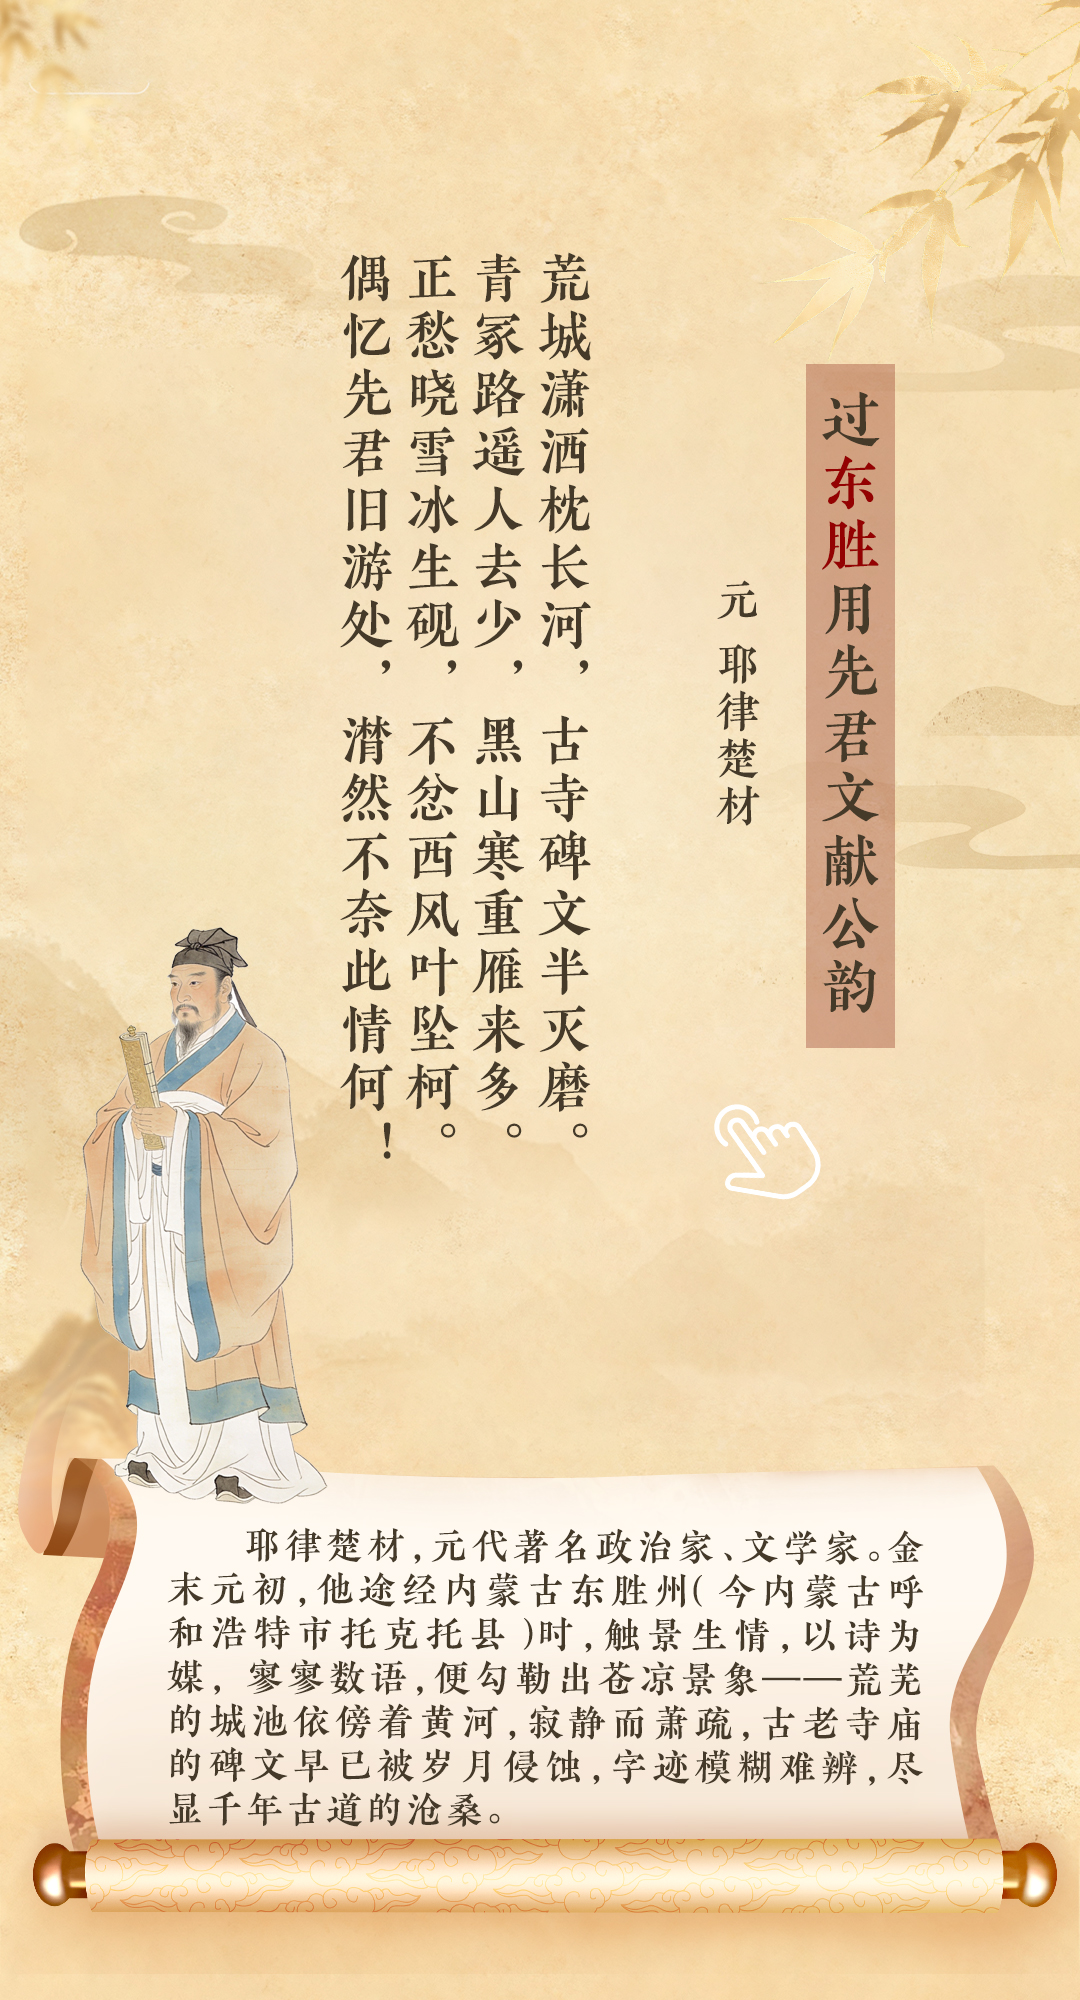 过东胜用先君文献公韵
元 耶律楚材
荒城潇洒枕长河，古寺碑文半灭磨。
青冢路遥人去少，黑山寒重雁来多。
正愁晓雪冰生砚，不忿西风叶坠柯。
偶忆先君旧游处，潸然不奈此情何！
耶律楚材，元代著名政治家、文学家。金
末元初，他途经内蒙古东胜州(今内蒙古呼
和浩特市托克托县)时，触景生情，以诗为
媒，寥寥数语，便勾勒出苍凉景象——荒芜
的城池依傍着黄河，寂静而萧疏，古老寺庙
的碑文早已被岁月侵蚀，字迹模糊难辨，尽
显千年古道的沧桑。